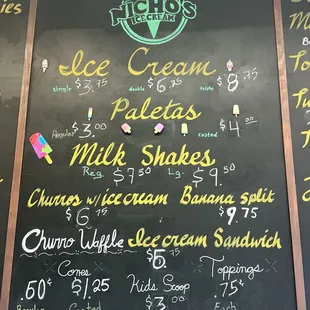 NICHO'S
ICECREAM
Ice Cream
simple $3.75 double $6.25 triple $8.75
Paletas
Regular $3.00 coated $4.00
Milk Shakes
Reg. $7.50 Lg. $9.50
Churros w/ icecream Banana split
$6.75 $9.75
Churro Waffle Icecream Sandwich
Cones Toppings
.50¢ $1.25 Kids Scoop .75¢
$3.00
Regular Coated Each